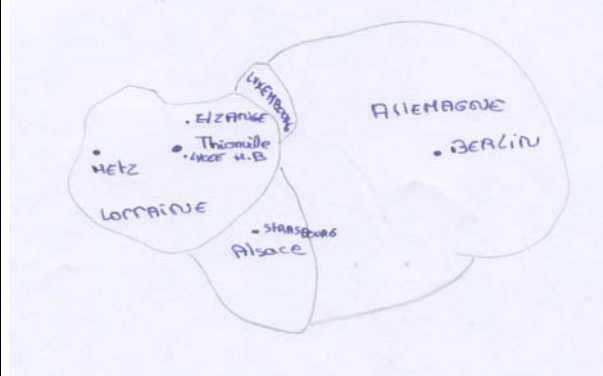 LUXEMBOURG
ALLEMAGNE
. ELZANGE
Thionville
. LYCEE H.B
BERLIN
METZ
LORRAINE
STRASBOURG
Alsace